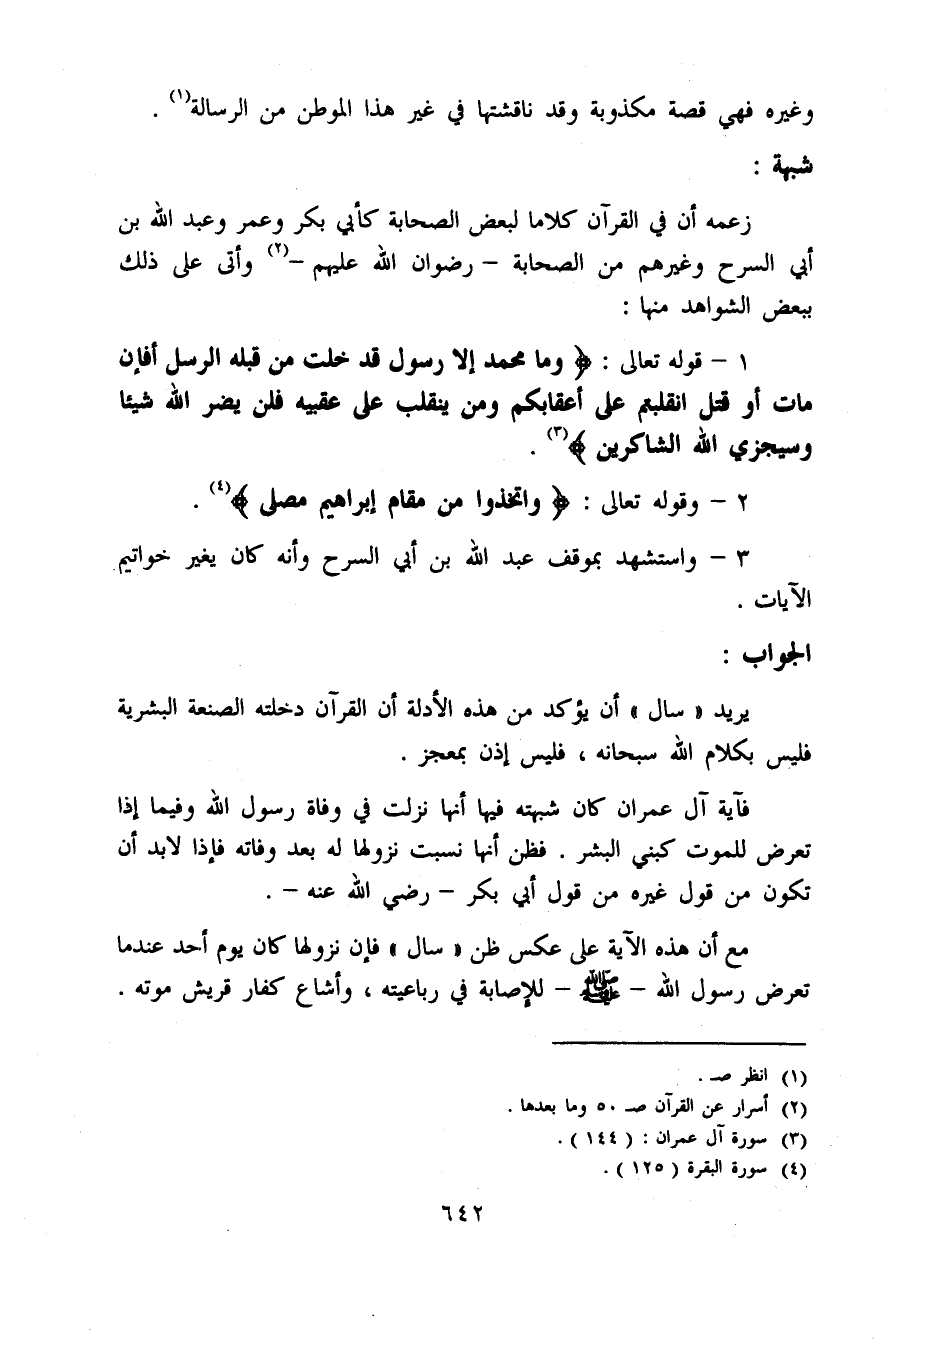 وغيره فهي قصة مكذوبة وقد ناقشتها في غير هذا الموطن من الرسالة(١) .
شبهة :
زعمه أن في القرآن كلاما لبعض الصحابة كأبي بكر وعمر وعبد الله بن
أبي السرح وغيرهم من الصحابة – رضوان الله عليهم –(٢) وأتى على ذلك
ببعض الشواهد منها :
١ – قوله تعالى : ﴿ وما محمد إلا رسول قد خلت من قبله الرسل أفإن
مات أو قتل انقلبتم على أعقابكم ومن ينقلب على عقبيه فلن يضر الله شيئا
وسيجزي الله الشاكرين ﴾(٣) .
٢ – وقوله تعالى : ﴿ واتخذوا من مقام إبراهيم مصلى ﴾(٤) .
٣ – واستشهد بموقف عبد الله بن أبي السرح وأنه كان يغير خواتيم
الآيات .
الجواب :
يريد « سال » أن يؤكد من هذه الأدلة أن القرآن دخلته الصنعة البشرية
فليس بكلام الله سبحانه ، فليس إذن بمعجز .
فآية آل عمران كان شبهته فيها أنها نزلت في وفاة رسول الله وفيما إذا
تعرض للموت كبني البشر . فظن أنها نسبت نزولها له بعد وفاته فإذا لابد أن
تكون من قول غيره من قول أبي بكر – رضي الله عنه – .
مع أن هذه الآية على عكس ظن « سال » فإن نزولها كان يوم أحد عندما
تعرض رسول الله – ﷺ – للإصابة في رباعيته ، وأشاع كفار قريش موته .
(١) انظر صـ .
(٢) أسرار عن القرآن صـ ٥٠ وما بعدها .
(٣) سورة آل عمران : ( ١٤٤ ) .
(٤) سورة البقرة ( ١٢٥ ) .
٦٤٢